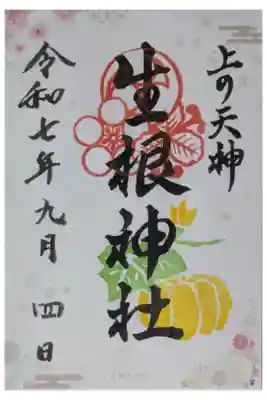 上の天神
生根神社
令和七年九月 四日